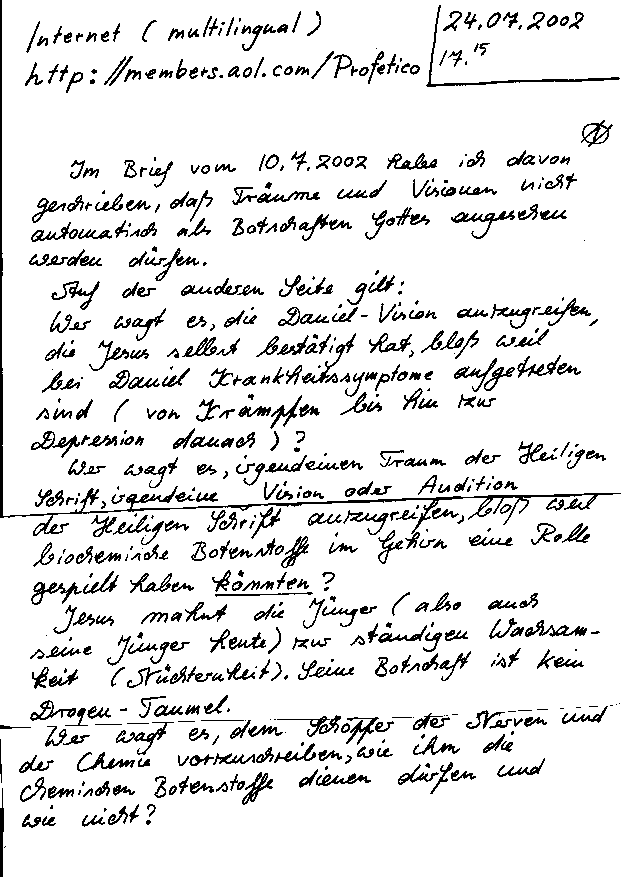 Internet ( multilingual )
http: //members.aol.com/Profetico
24.07.2002
17.15
Im Brief vom 10.7.2002 habe ich davon
geschrieben, daß Träume und Visionen nicht
automatisch als Botschaften Gottes angesehen
werden dürfen.
Auf der anderen Seite gilt:
Wer wagt es, die Daniel-Vision anzugreifen,
die Jesus selbst bestätigt hat, bloß weil
bei Daniel Krankheitssymptome aufgetreten
sind ( von Krämpfen bis hin zur
Depression danach ) ?
Wer wagt es, irgendeinen Traum der Heiligen
Schrift, irgendeine Vision oder Audition
der Heiligen Schrift anzugreifen, bloß weil
biochemische Botenstoffe im Gehirn eine Rolle
gespielt haben könnten ?
Jesus mahnt die Jünger ( also auch
seine Jünger heute) zur ständigen Wachsam-
keit ( Nüchternheit). Seine Botschaft ist kein
Drogen-Taumel.
Wer wagt es, dem Schöpfer der Nerven und
der Chemie vorzuschreiben, wie ihm die
chemischen Botenstoffe dienen dürfen und
wie nicht?